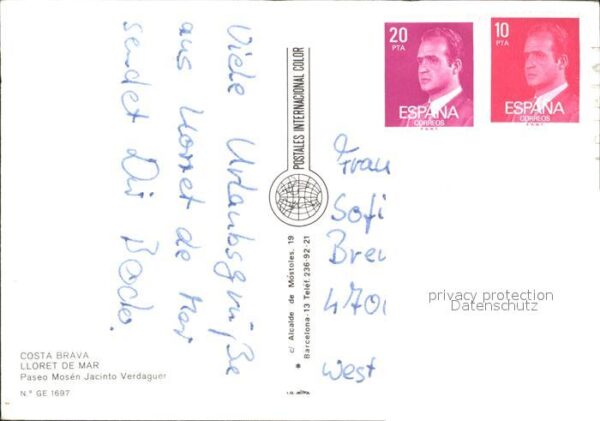 20
PTA
ESPAÑA
CORREOS
F.N.M.T.
10
PTA
ESPAÑA
CORREOS
F.N.M.T.
Viele Urlaubsgrüße
aus Lloret de Mar
sendet Dir
POSTALES INTERNACIONAL COLOR
c/ Alcalde de Móstoles, 19
Barcelona-13 Teléf. 236-92-21
Frau
Sofi
Breu
470
West
privacy protection
Datenschutz
COSTA BRAVA
LLORET DE MAR
Paseo Mosén Jacinto Verdaguer
N.º GE 1697